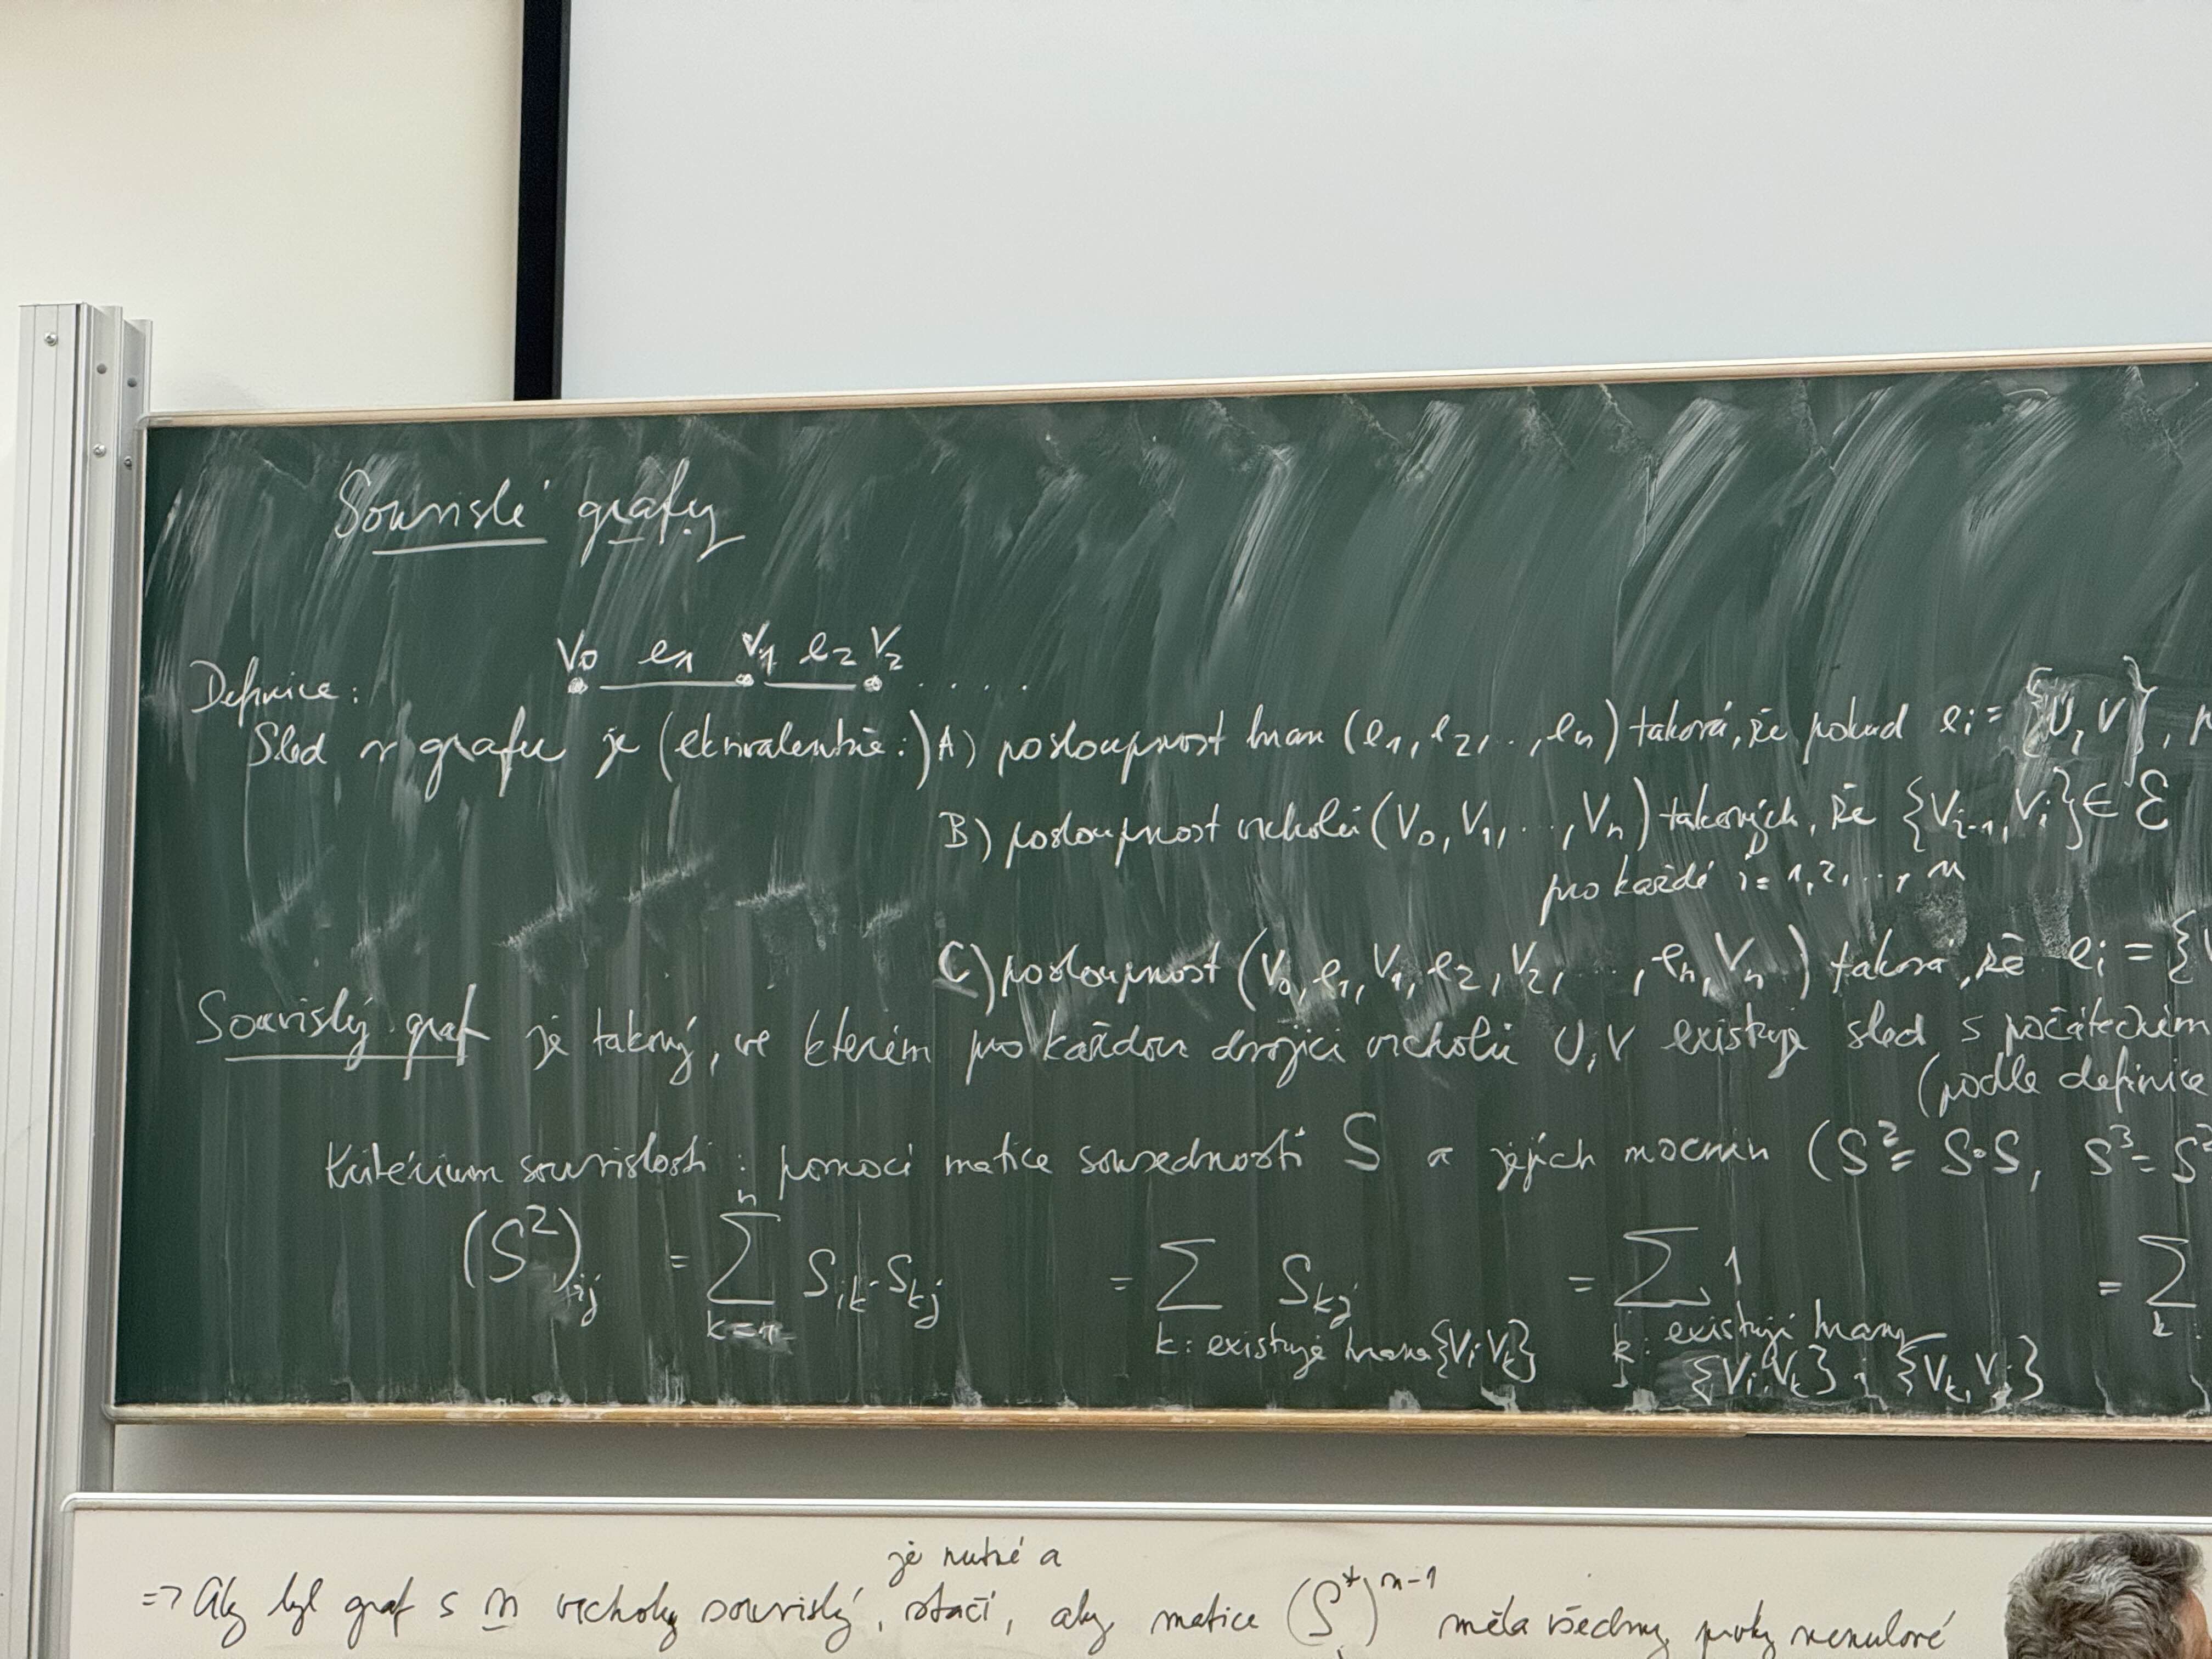 Souvislé grafy
V₀ e₁ V₁ e₂ V₂ . . . . .
Definice:
Sled v grafu je (ekvivalentně:) A) posloupnost hran (e₁, e₂, .. , eₙ) taková, že pokud eᵢ = {U, V},
B) posloupnost vrcholů (V₀, V₁, .. , Vₙ) takových, že {Vᵢ₋₁, Vᵢ} ∈ ℰ
pro každé i = 1, 2, .. , n
C) posloupnost (V₀, e₁, V₁, e₂, V₂, .. , eₙ, Vₙ) taková, že eᵢ = {
Souvislý graf je takový, ve kterém pro každou dvojici vrcholů U, V existuje sled s počátečním
(podle definice
Kritérium souvislosti : pomocí matice sousednosti S a jejích mocnin (S² = S·S, S³ = S²
(S²)ᵢⱼ = ∑ₖ₌₁ⁿ Sᵢₖ · Sₖⱼ = ∑ Sₖⱼ = ∑ 1 = ∑
k : existuje hrana {Vᵢ Vₖ} k : existují hrany k :
{Vᵢ, Vₖ} , {Vₖ, Vⱼ}
je nutné a
=> Aby byl graf s n vrcholy souvislý, stačí, aby matice (S*)ⁿ⁻¹ měla všechny prvky nenulové